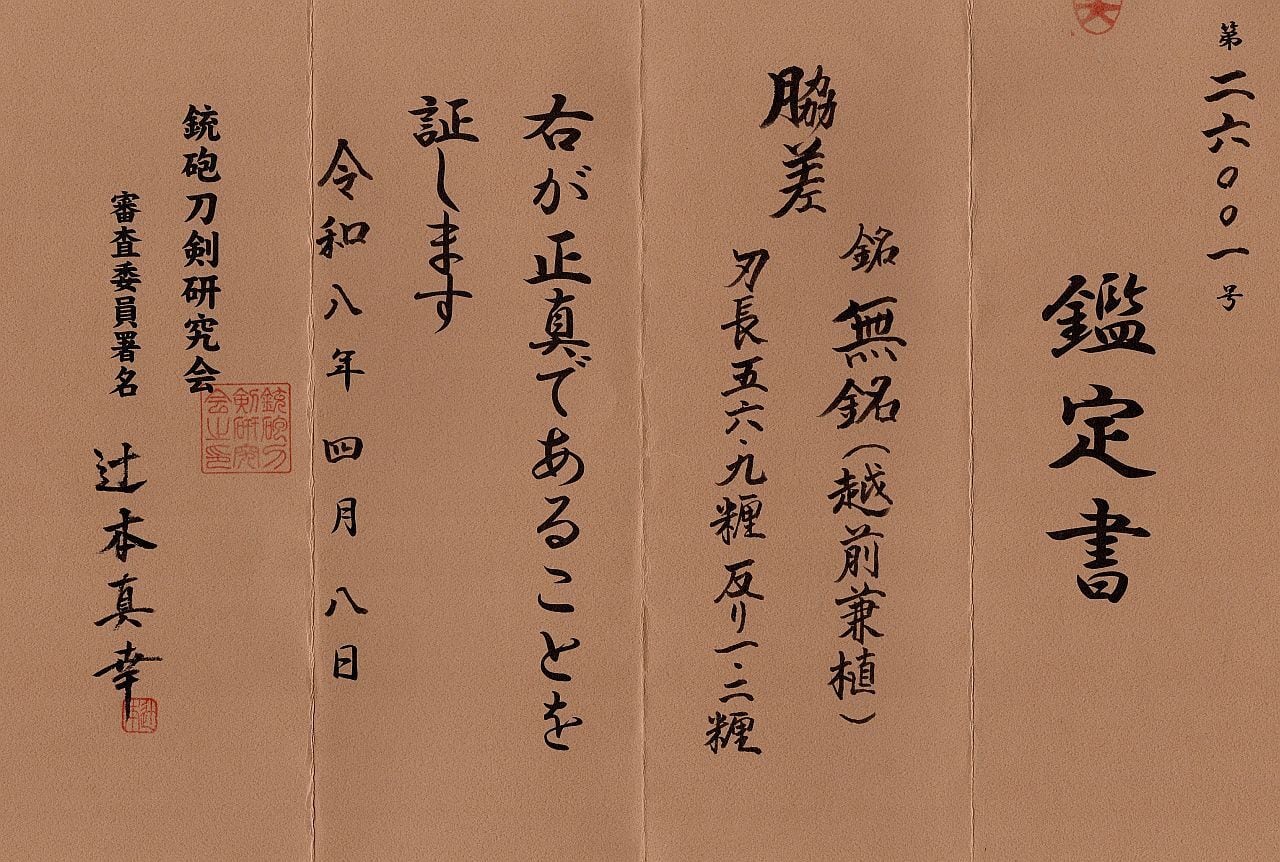 第二六〇〇一号
鑑定書
脇差
銘 無銘(越前兼植)
刃長五六・九糎 反り一・二糎
右が正真であることを
証します
令和八年四月八日
銃砲刀剣研究会
銃砲刀
剣研究
会之印
審査委員署名 辻本真幸
辻本